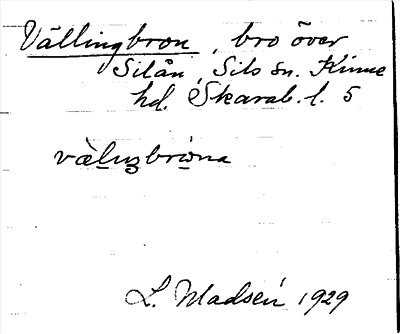 Vällingbron, bro över
Silån, Sils sn. Kinne
hd. Skarab. l. 5
L. Madsén 1929